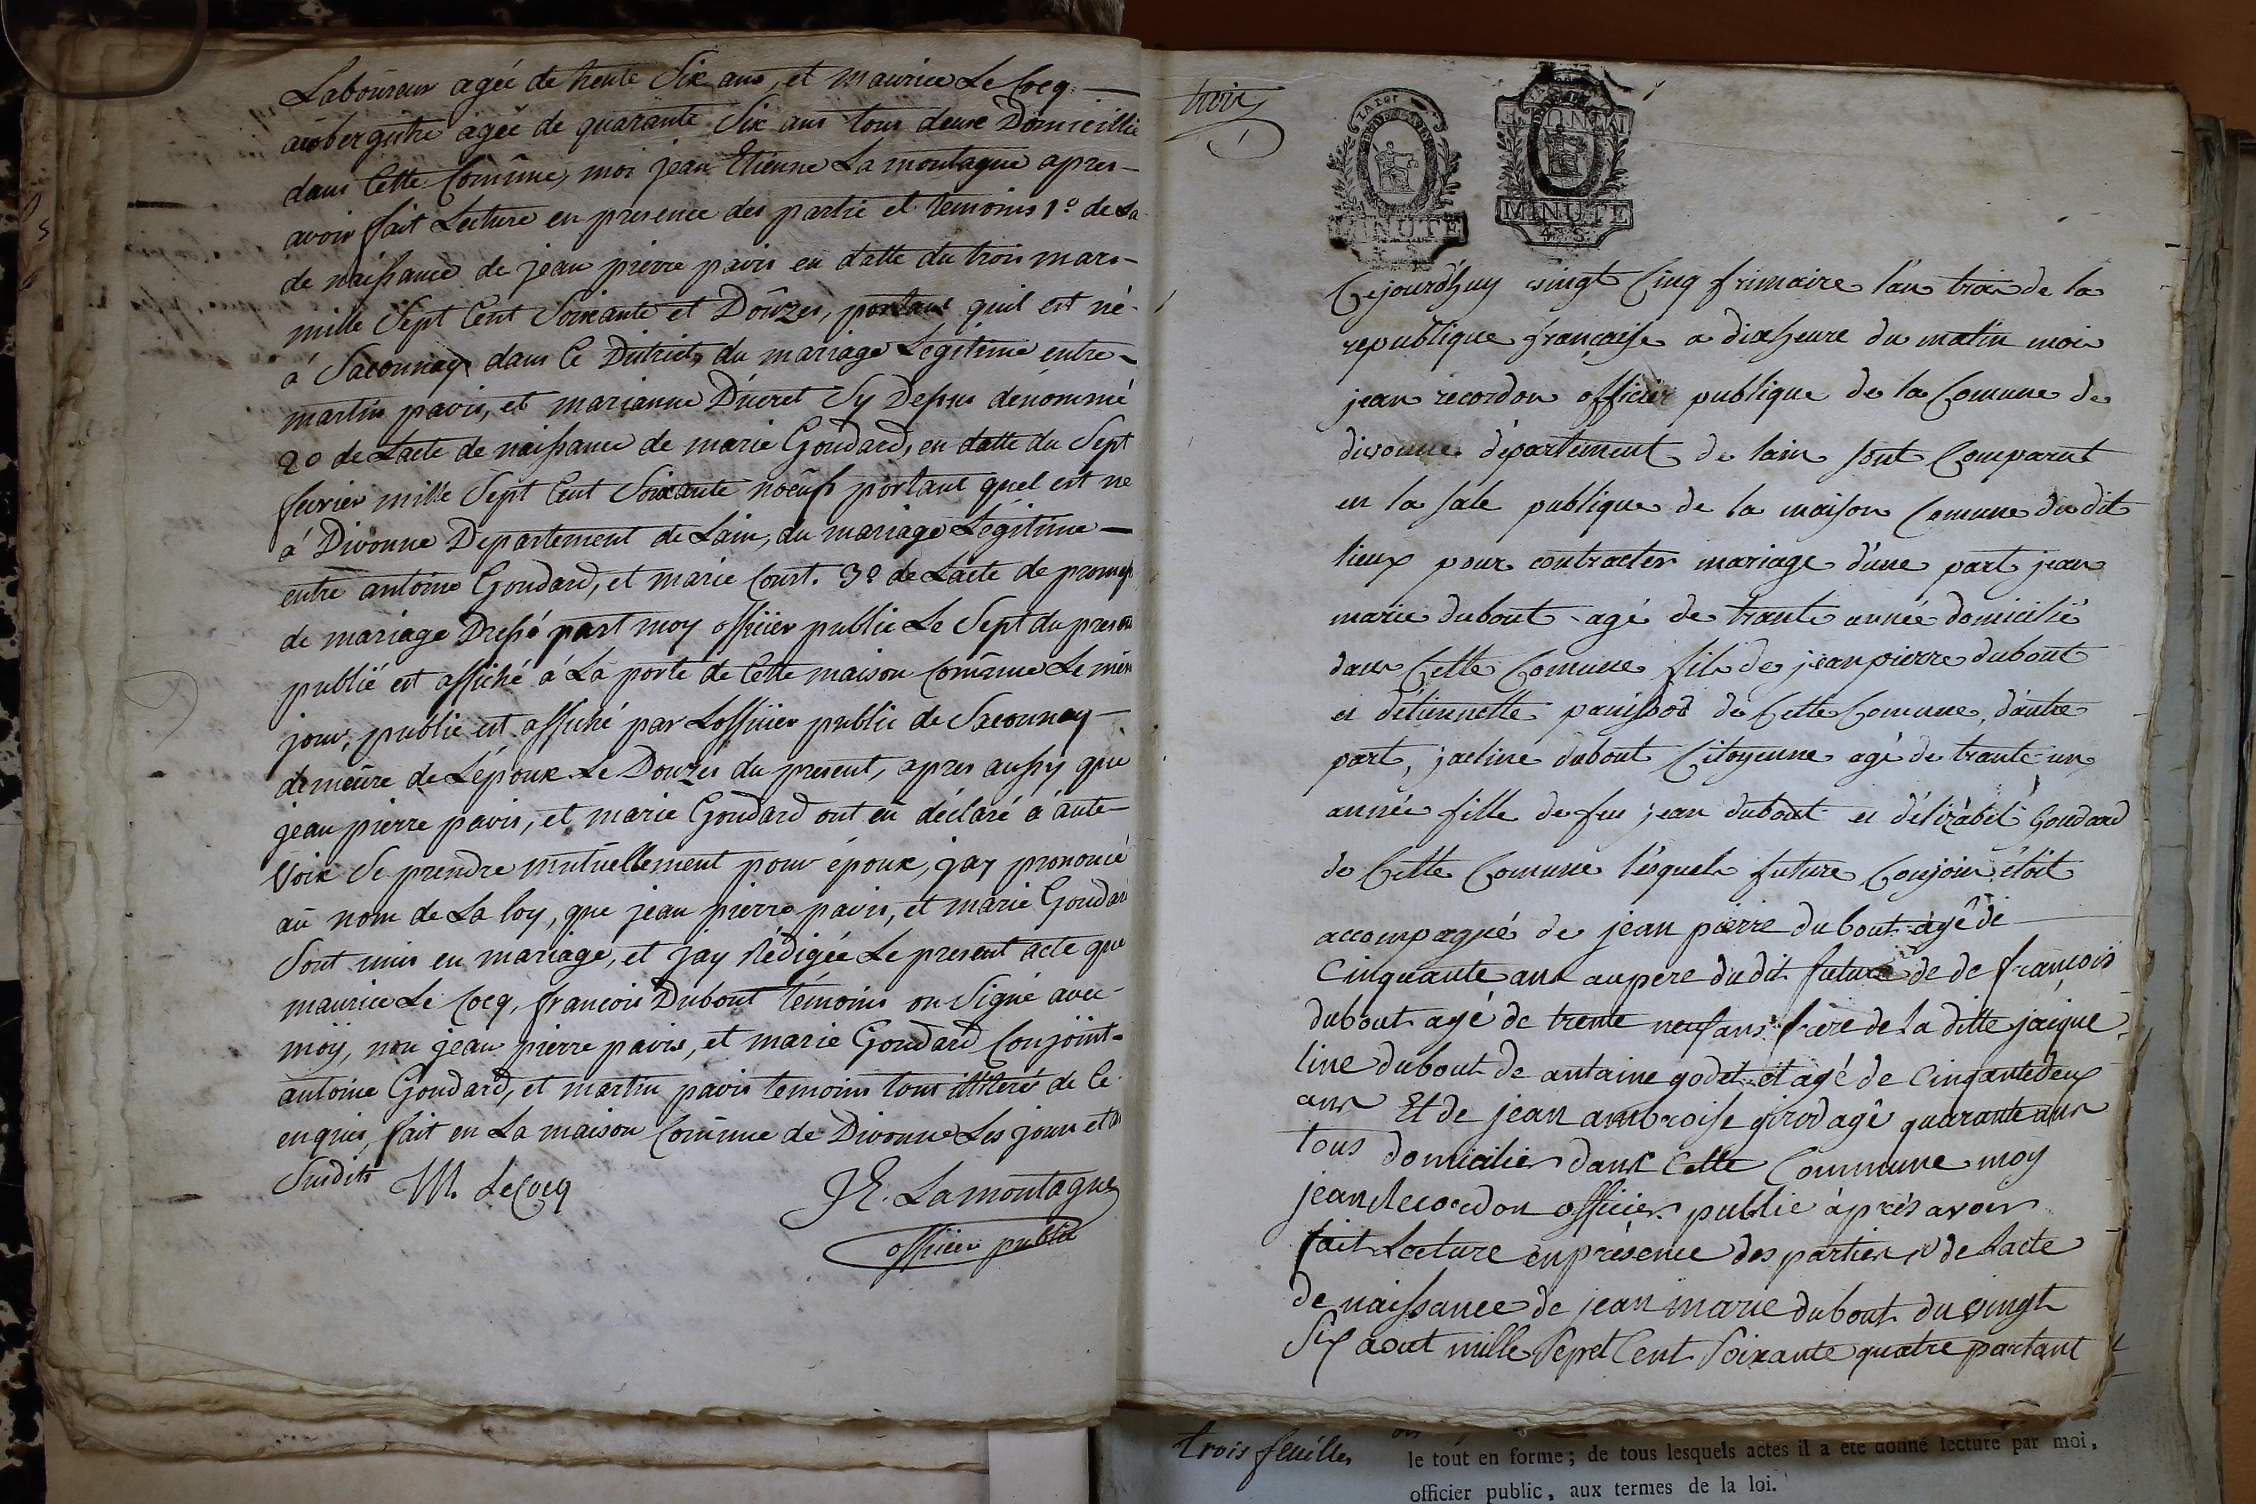 Laboureur agée de trente Six ans, et maurice Le Cocq
aubergiste agée de quarante Six ans tous deux Domicillié
dans Cette Commune, moi jean Etienne La montagne apres
avoir fait Lecture en presence des partie et temoins 1º de La
de naissance de jean pierre pavis en datte du trois mars
mille Sept Cent Soixante et Douzes, portant quil est né
á Saconnay dans Ce District, du mariage Legitime entre
martin pavis, et marianne Ducret Sy Dessus dénommé
2º de Lacte de naissance de marie Goudard, en datte du Sept
fevrier mille Sept Cent Soixante nœufs portant quel est ne
á Divonne Departement de Lain, du mariage Légitime
entre antoine Goudard, et marie Court. 3º de Lacte de promess
de mariage Dressé part moy officier public Le Sept du present
publié est affiché á La porte de Cette maison Commune Le mem
jour, publié est affiché par Lofficier public de Saconnay
demeure de Lépoux Le Douzes du present, apres aussy que
jean pierre pavis, et marie Goudard ont eu déclaré á aute
Voix Se prendre mutuellement pour époux, jay prononcé
au nom de La loy, que jean pierre pavis, et marie Goudar
Sont unis en mariage, et jay Rédigée Le present acte que
maurice Le Cocq, francois Dubout témoins on Signé avec
moy, non jean pierre pavis, et marie Goudard Conjoint
antoine Goudard, et martin pavis temoins tous illiteré de Ce
enquis, fait en La maison Commune de Divonne Les jour et an
Susdits
M. LeCocq
JE. Lamontagne
officier public
trois
LA LOI
MINUTE
MINUTE
4. S.
Cejourd'huy vingt Cinq frimaire l'an trois de la
republique françaisse a dix heure du matin moi
jean recordon officier publique de la Comune de
divonne département de lain sont Comparut
en la sale publique de la maison Comune dudit
lieux pour contracter mariage d'une part jean
marie dubout agé de trante année domicilié
dans Cette Comune fils de jean pierre dubout
et d'étiennette panissod de Cette Comune, d'autre
part, jacline dubout Citoyenne agé de trante un
année fille de feu jean dubout et d'élizabet Goudard
de Cette Comune lesquels future Conjoin étoit
accompagné de jean pierre dubout agé de
Cinquante ans aupere dudit future de de françois
dubout agé de trente neuf ans frere de la ditte jacque
line dubout de antaine godet et agé de Cinqantedeux
ans Et de jean ambroise girod agé quarante ans
tous domicilier dans Cette Commune moy
jean Recordon officier public après avoir
fait Lecture en présence des parties 1º de Lacte
de naissance de jean marie dubout du vingt
Six aout mille Sept Cent Soixante quatre portant
trois feuilles
le tout en forme; de tous lesquels actes il a été donné lecture par moi,
officier public, aux termes de la loi.